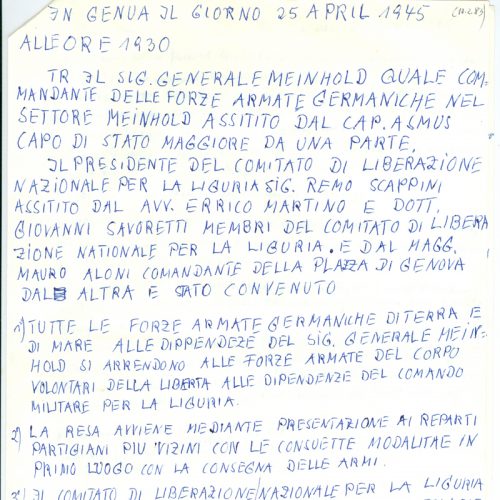 IN GENUA IL GIORNO 25 APRIL 1945
ALLEORE 1930
TR IL SIG. GENERALE MEINHOLD QUALE COM-
MANDANTE DELLE FORZE ARMATE GERMANICHE NEL
SETTORE MEINHOLD ASSITITO DAL CAP. ASMUS
CAPO DI STATO MAGGIORE DA UNA PARTE,
IL PRESIDENTE DEL COMITATO DI LIBERAZIONE
NAZIONALE PER LA LIGURIA SIG. REMO SCAPPINI
ASSITITO DAL AVV. ERRICO MARTINO E DOTT.
GIOVANNI SAVORETTI MEMBRI DEL COMITATO DI LIBERA
ZIONE NATIONALE PER LA LIGURIA. E DAL MAGG.
MAURO ALONI COMANDANTE DELLA PLAZZA DI GENOVA
DALL ALTRA E STATO CONVENUTO
1) TUTTE LE FORZE ARMATE GERMANICHE DI TERRA E
DI MARE ALLE DIPPENDEZE DEL SIG. GENERALE MEIN-
HOLD SI ARRENDONO ALLE FORZE ARMATE DEL CORPO
VOLONTARI DELLA LIBERTA ALLE DIPENDENZE DEL COMANDO
MILITARE PER LA LIGURIA.
2) LA RESA AVVIENE MEDIANTE PRESENTAZIONE AI REPARTI
PARTIGIANI PIU VIZINI CON LE CONSUETTE MODALITAE IN
PRIMO LUOGO CON LA CONSEGNA DELLE ARMI.
3) IL COMITATO DI LIBERAZIONE NAZIONALE PER LA LIGURIA